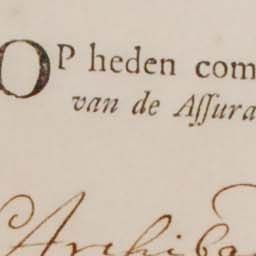 OP heden com
van de Aſſura
Archiba